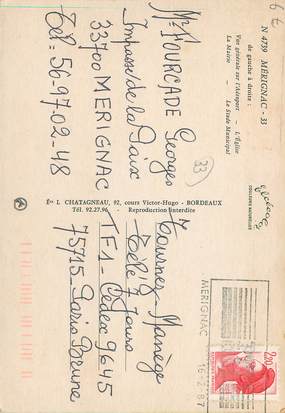 N 4759 MÉRIGNAC - 33
de gauche à droite :
Vue générale sur l'Aéroport - L'Église
La Mairie - Le Stade Municipal
6 €
33
Mr FOURCADE Georges
Impasse de la Paix
33700 MERIGNAC
Tél: 56-97-02-48
Ets L. CHATAGNEAU, 92, cours Victor-Hugo - BORDEAUX
Tél. 92.27.96 - Reproduction interdite
COULEURS NATURELLES
Tournez Manège
Télé 7 Jours
TF1 - Cedex 9645
75715 Paris Brune
MERIGNAC
16-2-87
2,20